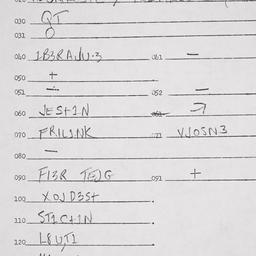 030 QT
031 O
040 1B3RAJU.3 041 —
050 +
051 ÷ 052 —
060 JEST1N 061 →
070 FRIL1NK 071 VJOSN3
080 —
090 F13R TEJG 091 +
100 XOJD3St
110 ST1C+1N
120 L8UT1